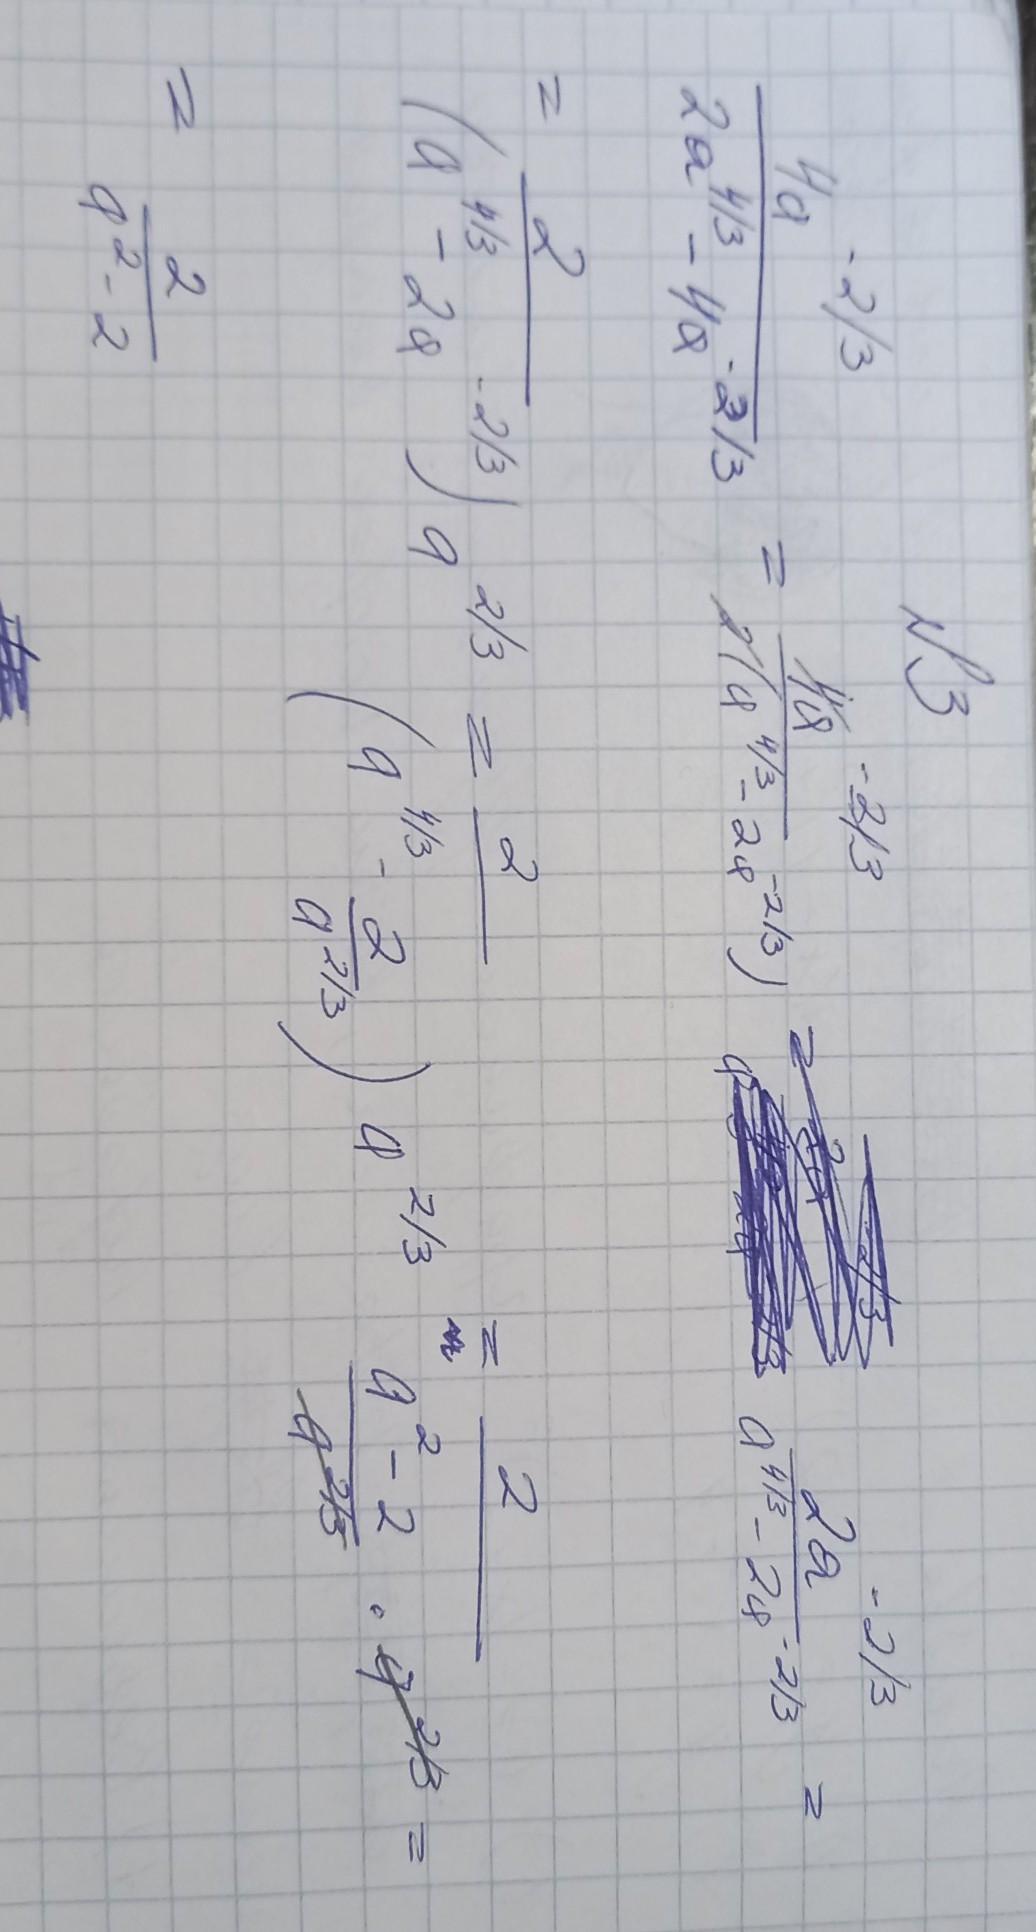 №3
4a^-2/3 / (2a^4/3 - 4a^-2/3) = 4a^-2/3 / 2(a^4/3 - 2a^-2/3) = 2a^-2/3 / (a^4/3 - 2a^-2/3) =
= 2 / (a^4/3 - 2a^-2/3) a^2/3 = 2 / (a^4/3 - 2/a^2/3) a^2/3 = 2 / ((a^2 - 2)/a^2/3 · a^2/3) =
= 2 / (a^2 - 2)